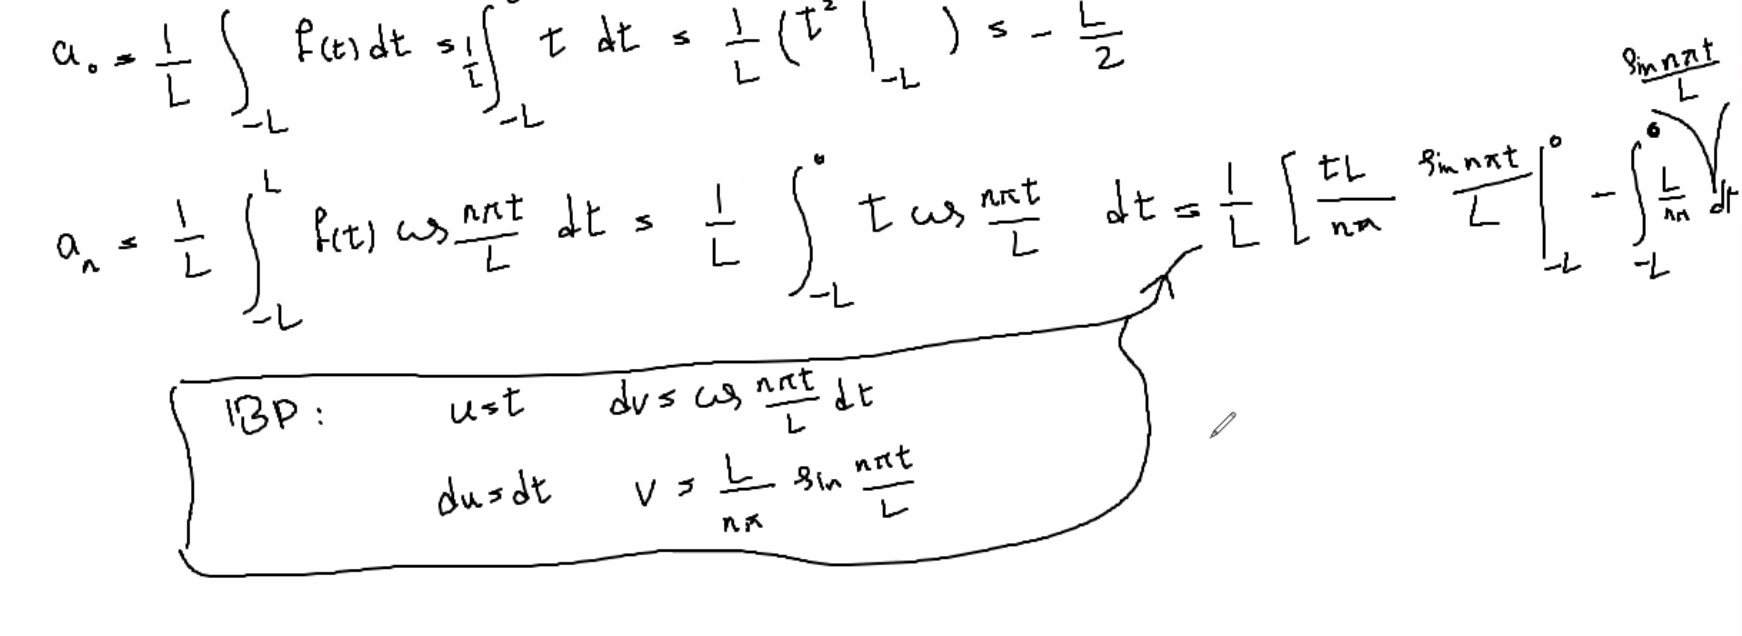 a₀ = 1/L ∫_{-L} f(t) dt = 1/L ∫_{-L}^{0} t dt = 1/L (t² |_{-L} ) = - L/2
a_n = 1/L ∫_{-L}^{L} f(t) cos nπt/L dt = 1/L ∫_{-L}^{0} t cos nπt/L dt = 1/L [ tL/nπ sin nπt/L |_{-L}^{0} - ∫_{-L}^{0} L/nπ sin nπt/L dt
IBP: u=t dv= cos nπt/L dt
du=dt v= L/nπ sin nπt/L